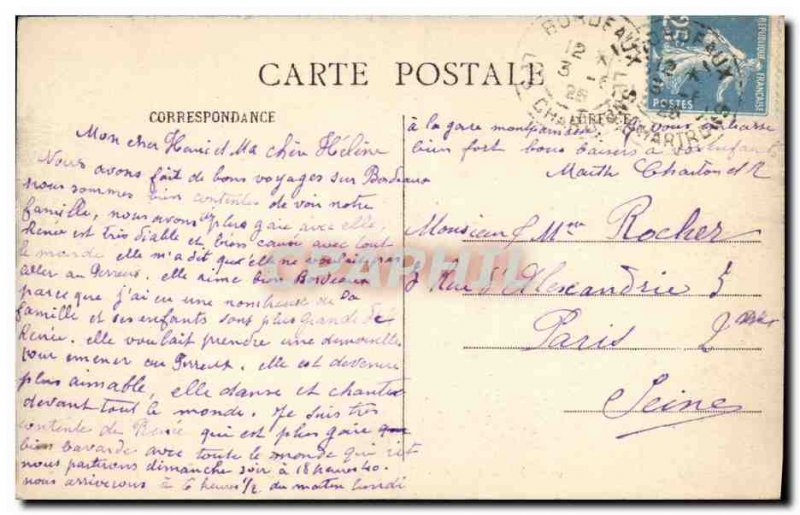 CARTE POSTALE
CORRESPONDANCE
ADRESSE
BORDEAUX
12
3
25
BORDEAUX
25
POSTES
REPUBLIQUE FRANÇAISE
Mon cher Henri et Ma chère Hélène
Nous avons fait de bons voyages sur Bordeaux
nous sommes bien contentes de voir notre
famille, nous avons plus gaie avec elle
Renée est très diable et bien cause avec tout
le monde elle m'a dit qu'elle ne voulait pas
aller au Perreux. elle aime bien Bordeaux
parce que j'ai eu une nombreuse de la
famille et ses enfants sont plus grands de
Renée. elle voulait prendre une demoiselle
pour emener au Perreux. elle est devenue
plus aimable, elle danse et chante
devant tout le monde. Je suis très
contente de Renée qui est plus gaie que
bien bavarde avec toute le monde qui rit
nous partirons dimanche soir à 18 heures 40.
nous arriverons à 6 heures 1/2 du matin lundi
à la gare montparnasse vous embrasse
bien fort bons baisers à
Marthe Charton et R
Monsieur & Mme Rocher
3 Rue d'Alexandrie 3
Paris 2
Seine
CPAPHIL